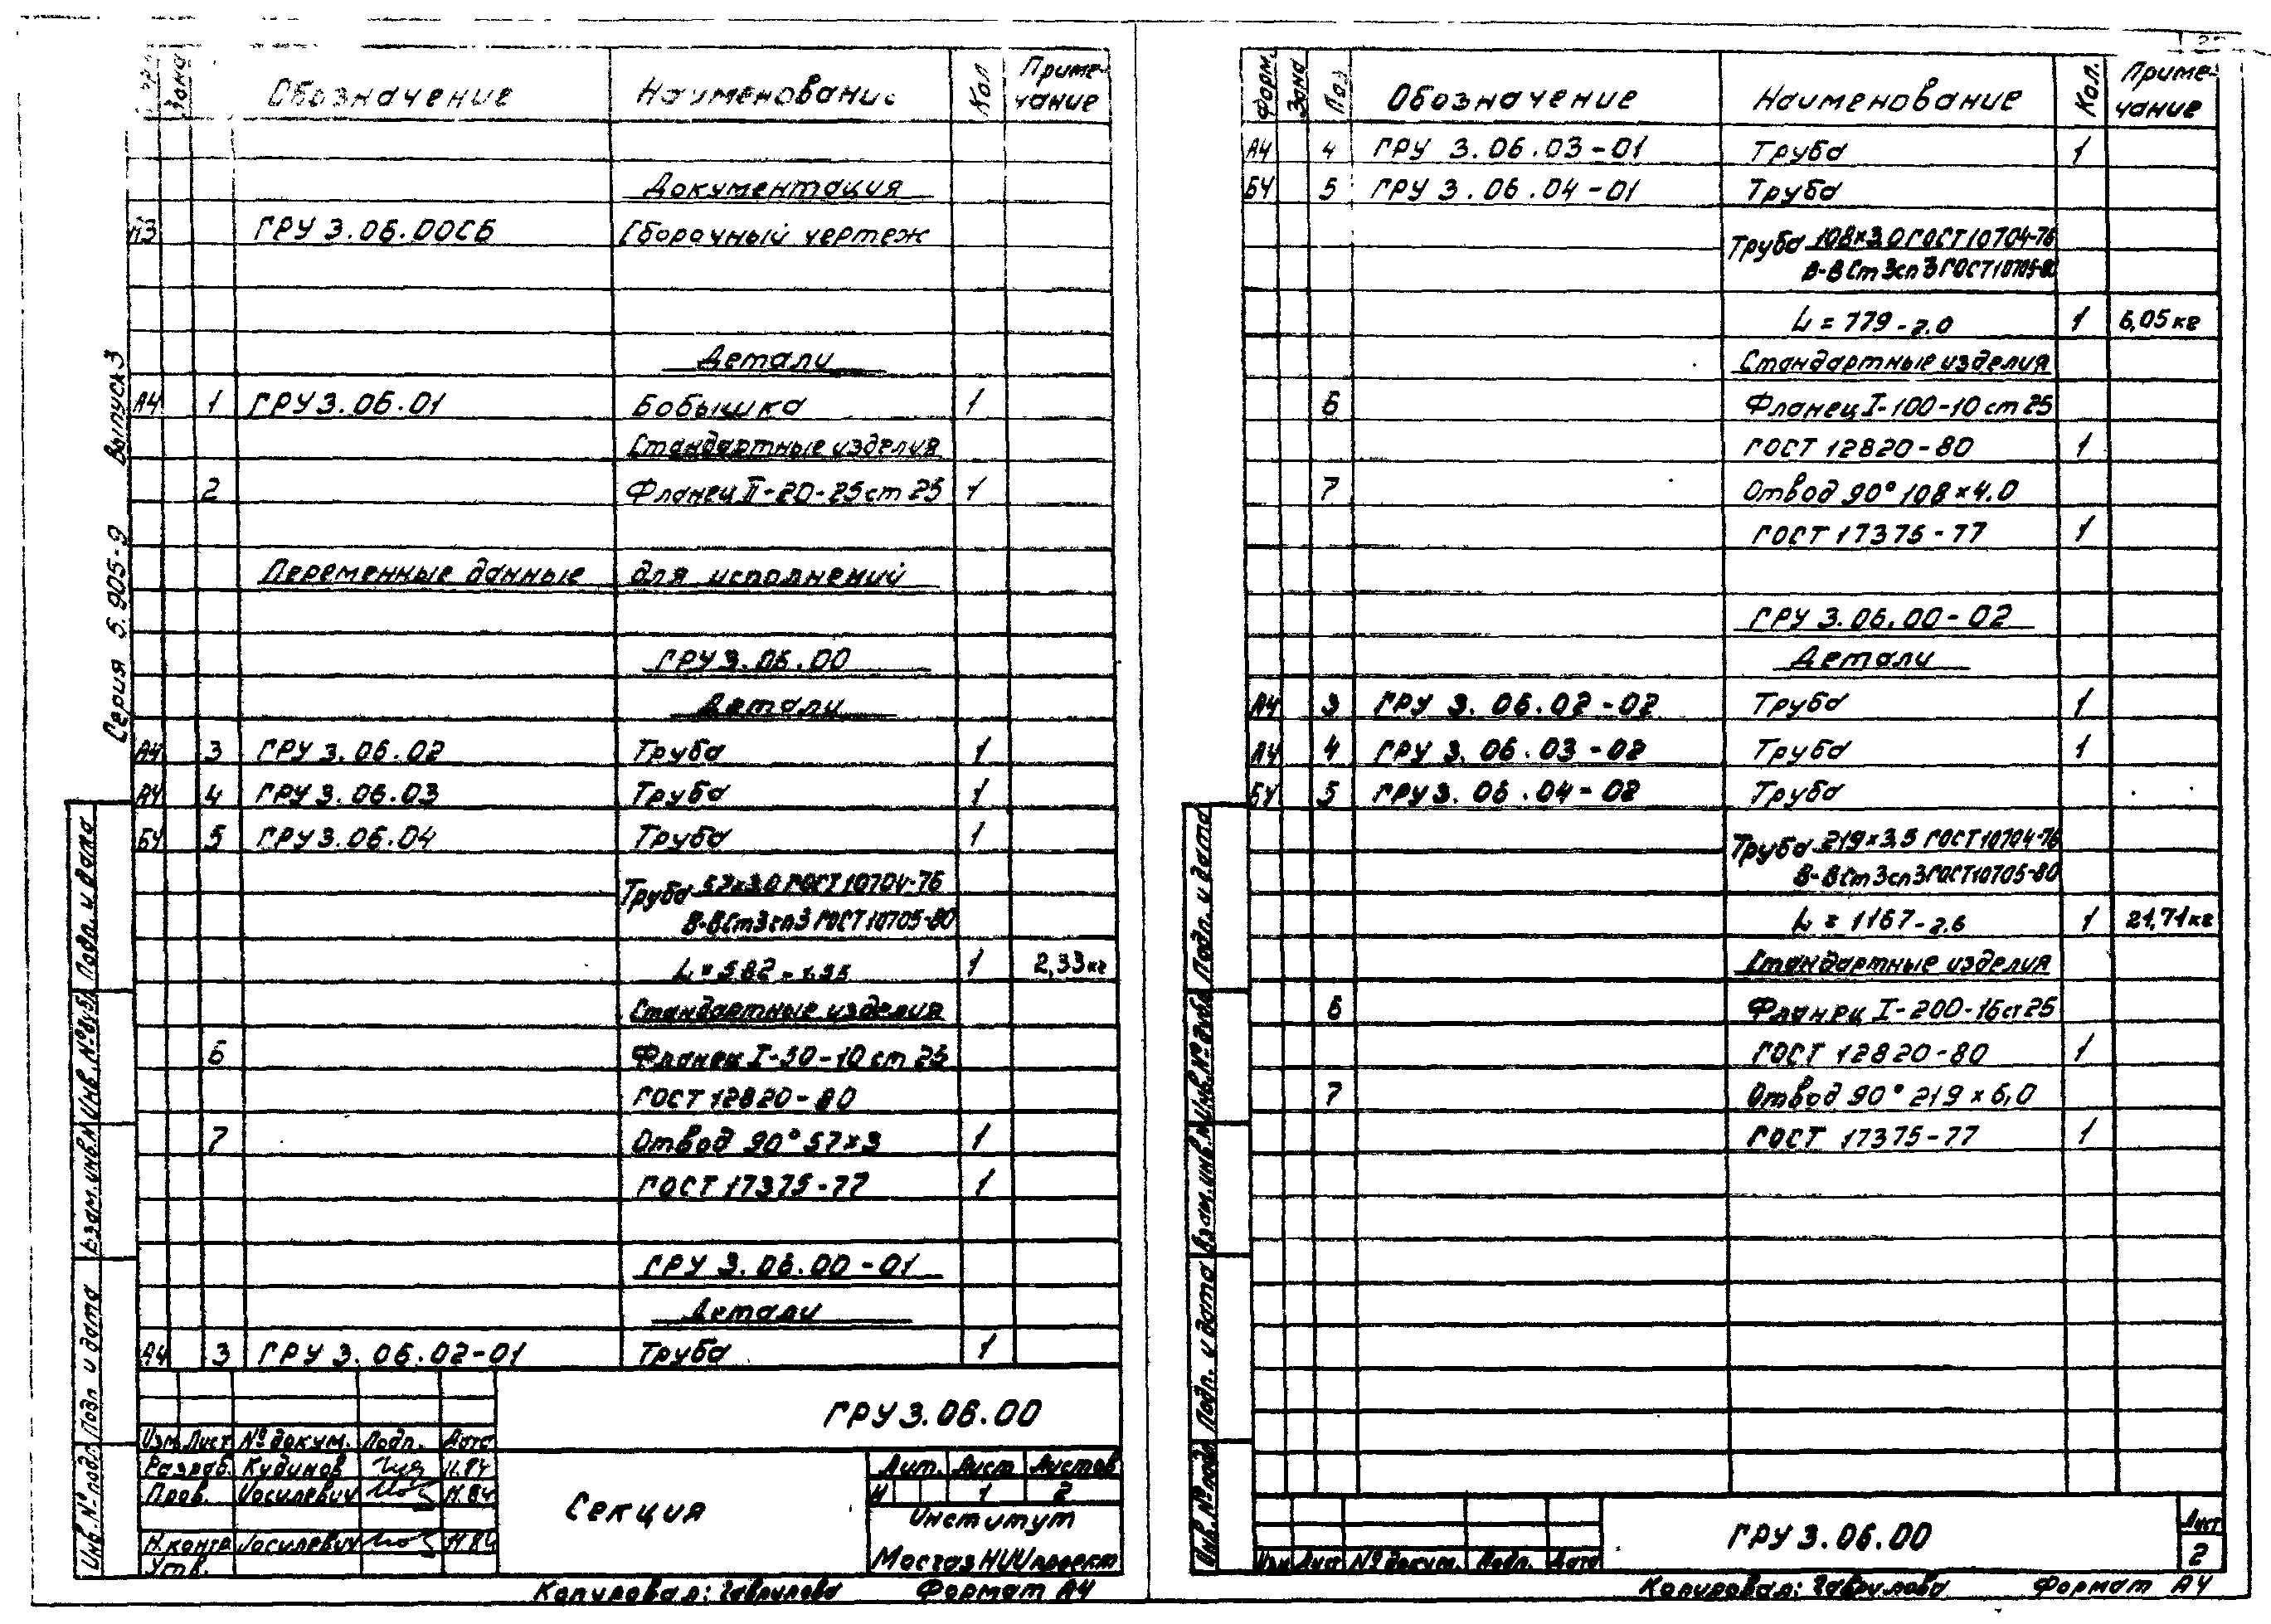 Зона Обозначение Наименование Кол Приме-
чание
Документация
А3 ГРУ 3.06.00СБ Сборочный чертеж
Детали
А4 1 ГРУ 3.06.01 Бобышка 1
Стандартные изделия
2 Фланец II-20-25 ст 25 1
Переменные данные для исполнений
ГРУ 3.06.00
Детали
А4 3 ГРУ 3.06.02 Труба 1
А4 4 ГРУ 3.06.03 Труба 1
БЧ 5 ГРУ 3.06.04 Труба 1
Труба 57х3.0 ГОСТ 10704-76
В-ВСт3сп3 ГОСТ 10705-80
L = 582 - 1.35 1 2,33 кг
Стандартные изделия
6 Фланец I-50-10 ст 25
ГОСТ 12820-80
7 Отвод 90° 57х3 1
ГОСТ 17375-77 1
ГРУ 3.06.00-01
Детали
А4 3 ГРУ 3.06.02-01 Труба 1
ГРУ 3.06.00
Изм Лист № докум. Подп. Дата
Разраб. Кудинов 11.84
Пров. Иосилевич 11.84
Н.контр Иосилевич 11.84
Утв.
Секция
Лит. Лист Листов
И 1 2
Институт
МосгазНИИпроект
Копировал: Гаврилова Формат А4
Серия 5.905-9 Выпуск 3
Инв.№подл. Подп и дата Взам.инв.№ Инв.№дубл. Подп. и дата
Форм. Зона Поз Обозначение Наименование Кол. Приме-
чание
А4 4 ГРУ 3.06.03-01 Труба 1
БЧ 5 ГРУ 3.06.04-01 Труба
Труба 108х3.0 ГОСТ 10704-76
В-ВСт3сп3 ГОСТ 10705-80
L = 779 - 2.0 1 6,05 кг
Стандартные изделия
6 Фланец I-100-10 ст 25
ГОСТ 12820-80 1
7 Отвод 90° 108х4.0
ГОСТ 17375-77 1
ГРУ 3.06.00-02
Детали
А4 3 ГРУ 3.06.02-02 Труба 1
А4 4 ГРУ 3.06.03-02 Труба 1
БЧ 5 ГРУ 3.06.04-02 Труба
Труба 219х3.5 ГОСТ 10704-76
В-ВСт3сп3 ГОСТ 10705-80
L = 1167 - 2.6 1 21,71 кг
Стандартные изделия
6 Фланец I-200-16 ст 25
ГОСТ 12820-80 1
7 Отвод 90° 219х6,0
ГОСТ 17375-77 1
ГРУ 3.06.00
Лист
2
Изм Лист № докум. Подп. Дата
Копировал: Гаврилова Формат А4
Инв.№подл Подп. и дата Взам.инв.№ Инв.№дубл. Подп. и дата